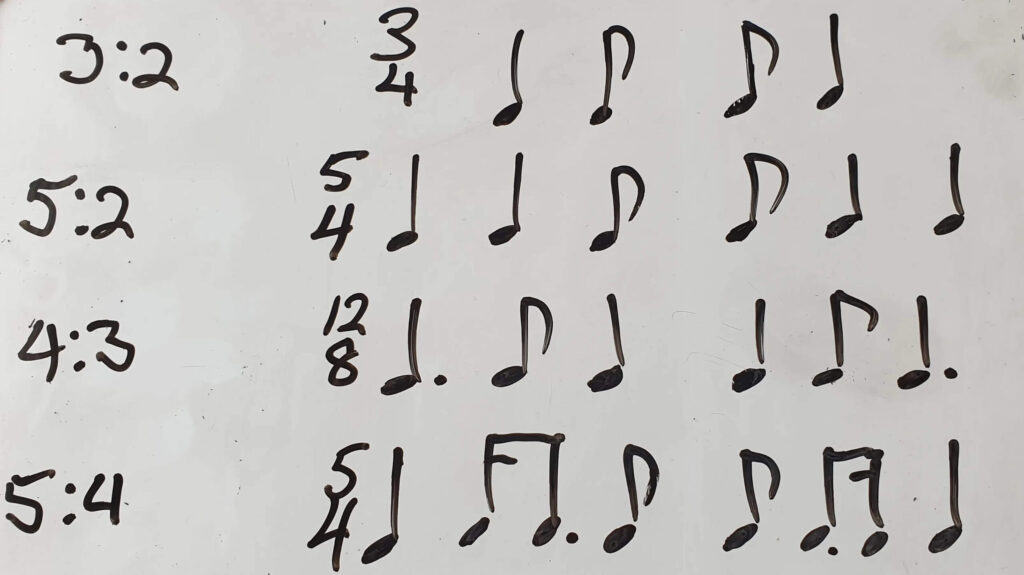 3:2 3/4
5:2 5/4
4:3 12/8
5:4 5/4